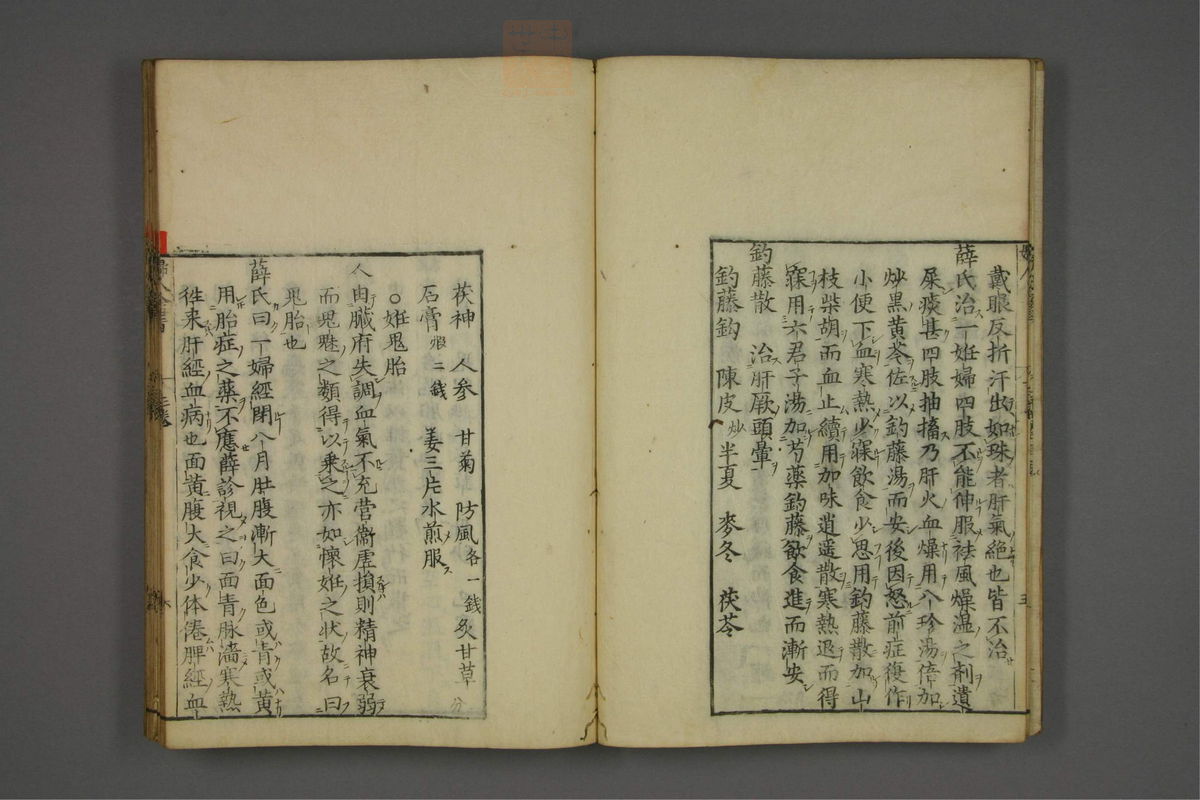 戴眼反折汗出如珠者肝氣絶也皆不治
薛氏治一姙婦四肢不能伸服祛風燥湿之剤遺
屎痰甚四肢抽搐乃肝火血燥用八珍湯倍加
炒黒黄芩佐以釣藤湯而安後因怒前症復作
小便下血寒熱少寐飲食少思用釣藤散加山
枝柴胡而血止續用加味逍遥散寒熱退而得
寐用六君子湯加芍薬釣藤飲食進而漸安
釣藤散　治肝厥頭暈
釣藤鈎　陳皮炒　半夏　麥冬　茯苓
茯神　人参　甘菊　防風各一錢　炙甘草
石膏煆二錢　姜三片水煎服
○姙鬼胎
人由臓府失調血氣不充営衞虚損則精神衰弱
而鬼魅之類得以乗之亦如懐姙之状故名曰
鬼胎也
薛氏曰一婦經閉八月肚腹漸大面色或青或黄
用胎症之薬不應薛診視之曰面青脉濇寒熱
徃来肝經血病也面黄腹大食少体倦脾經血